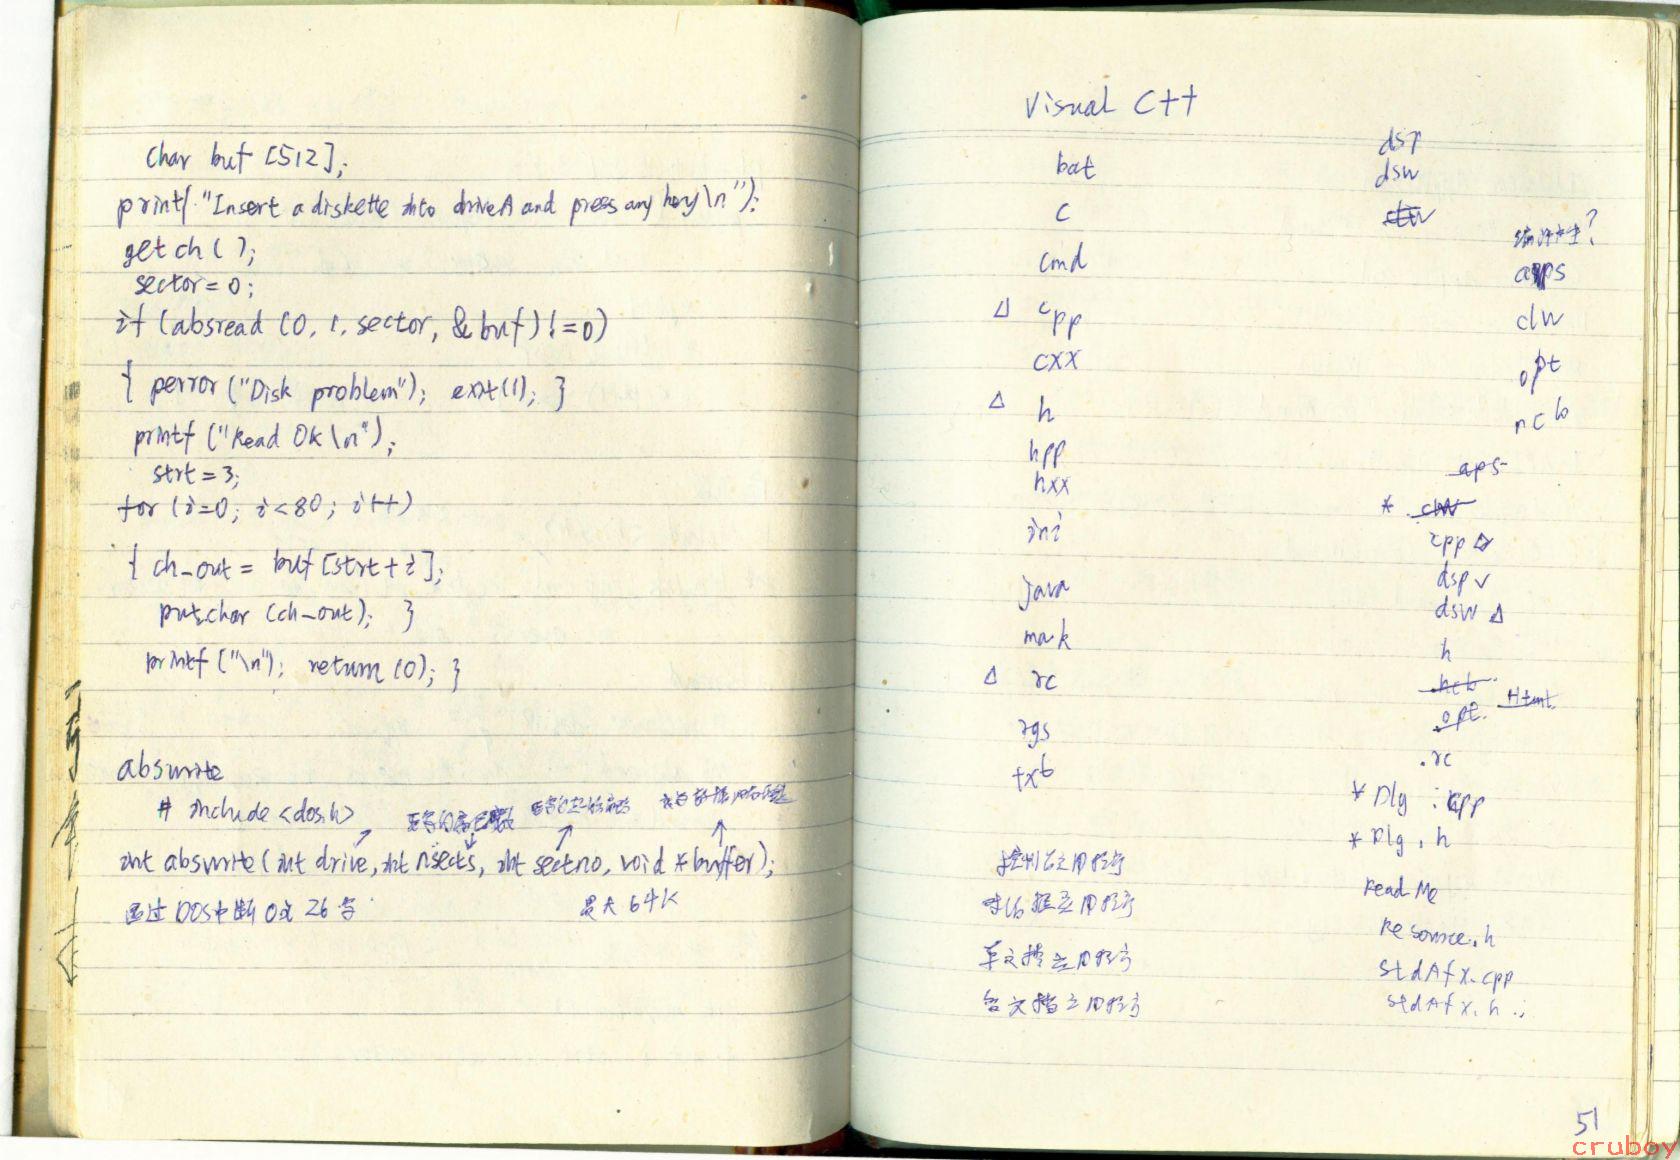 char buf [512];
printf "Insert a diskette into drive A and press any key \n");
getch ( );
sector = 0;
if (absread (0, 1, sector, & buf) != 0)
{ perror ("Disk problem"); exit(1); }
printf ("Read OK \n");
strt = 3;
for (i=0; i<80; i++)
{ ch_out = buf [strt + i];
putchar (ch_out); }
printf ("\n"); return (0); }
abswrite
# include <dos.h>
int abswrite (int drive, int nsects, int sectno, void * buffer);
通过 DOS中断 0x 26 写
最大 64K
Visual C++
bat
c
cmd
Δ cpp
cxx
Δ h
hpp
hxx
ini
java
mak
Δ rc
rgs
txt
控制台应用程序
对话框应用程序
单文档应用程序
多文档应用程序
dsp
dsw
编译产生?
aps
clw
opt
ncb
aps
* . clw
cpp Δ
dsp √
dsw Δ
h
.ncb
Html
.opt.
.rc
* Dlg . cpp
* Dlg . h
Read Me
Resource.h
StdAfx.cpp
StdAfx.h
51
cruboy